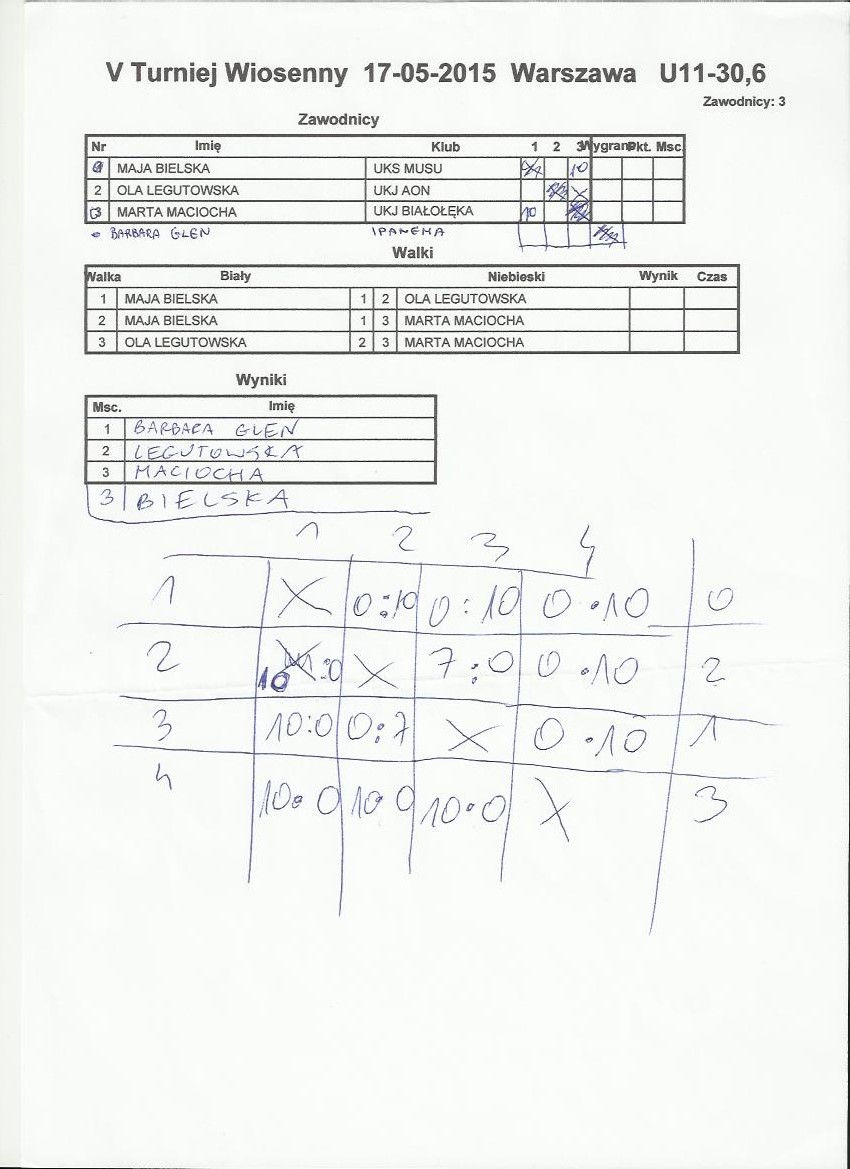 V Turniej Wiosenny 17-05-2015 Warszawa U11-30,6
Zawodnicy: 3
Zawodnicy
Nr Imię Klub 1 2 3 Wygran Pkt. Msc.
MAJA BIELSKA UKS MUSU 10
2 OLA LEGUTOWSKA UKJ AON X
3 MARTA MACIOCHA UKJ BIAŁOŁĘKA 10
BARBARA GLEN IPANEMA
Walki
Walka Biały Niebieski Wynik Czas
1 MAJA BIELSKA 1 2 OLA LEGUTOWSKA
2 MAJA BIELSKA 1 3 MARTA MACIOCHA
3 OLA LEGUTOWSKA 2 3 MARTA MACIOCHA
Wyniki
Msc. Imię
1 BARBARA GLEN
2 LEGUTOWSKA
3 MACIOCHA
3 BIELSKA
1 2 3 4
1 X 0:10 0:10 0.10 0
2 10:0 X 7:0 0.10 2
3 10:0 0:7 X 0.10 1
4 10:0 10:0 10:0 X 3